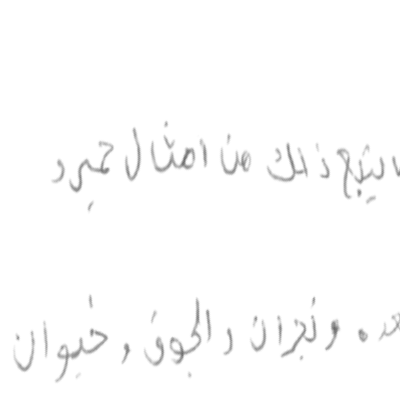 ما يتبع ذلك من امثال حمير و
ده ونجران والجوف وخيوان